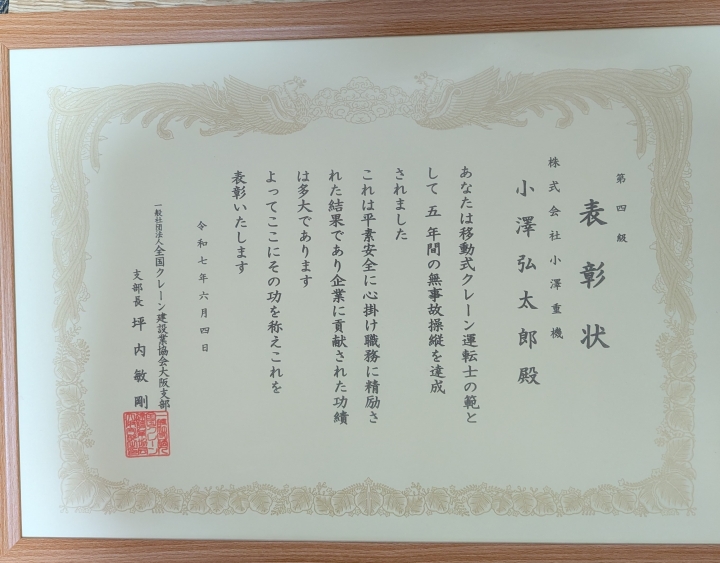 第四級
表彰状
株式会社小澤重機
小澤弘太郎殿
あなたは移動式クレーン運転士の範と
して五年間の無事故操縦を達成
されました
これは平素安全に心掛け職務に精励さ
れた結果であり企業に貢献された功績
は多大であります
よってここにその功を称えこれを
表彰いたします
令和七年六月四日
一般社団法人全国クレーン建設業協会大阪支部
支部長 坪内敏剛